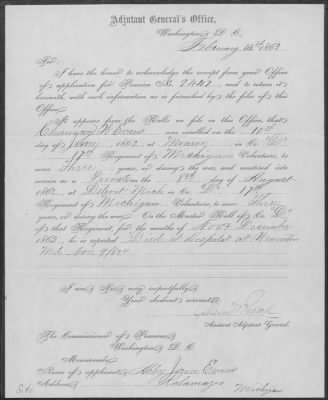 Adjutant General's Office,
Washington D. C.
February 14th 1863
Sir:
I have the honor to acknowledge the receipt from your Office
of application for Pension No. 2447, and to return it
herewith, with such information as is furnished by the files of this
Office.
It appears from the Rolls on file in this Office, that
W. Evans was enrolled on the
day of 1862 at in Co. "D"
17th Regiment of Michigan Volunteers, to serve
Three years, or during the war, and mustered into
service as a on the of August
1862 at Detroit Mich in Co. D 17th
Regiment of Michigan Volunteers, to serve Three
years, or during the war. On the Muster Roll of Co. "D"
of that Regiment, for the months of Nov & December
1862 he is reported Died at Hospital at
Md. Nov. 1862
I am Sir very respectfully
Your obedient servant
Assistant Adjutant General.
The Commissioner of Pensions
Washington D. C.
Memoranda
Name of applicant Jane Evans
Address, Kalamazoo Michigan